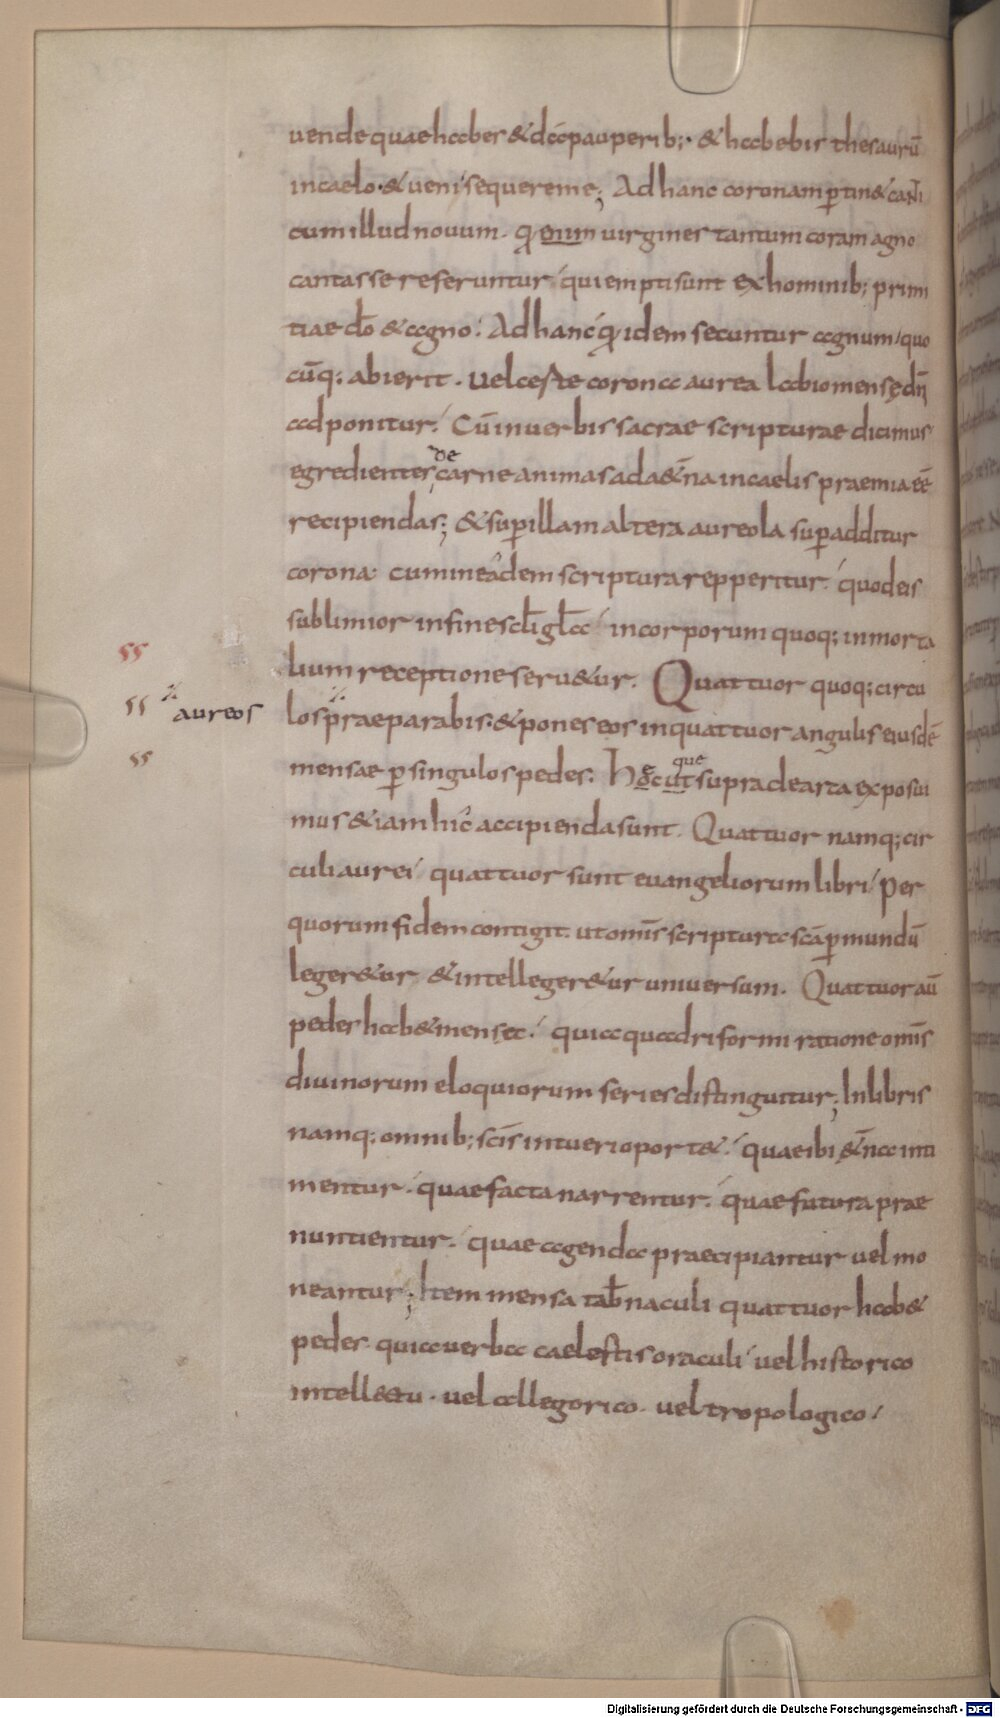 uende quae habes & da pauperib; & habebis thesaurū
in caelo · & ueni sequere me; Ad hanc coronam ꝑtin& canti
cum illud nouum · qđ enim uirgines tantum coram agno
cantasse referuntur / qui empti sunt ex hominib; primi
tiae dō & agno · Ad hanc qđ idem secuntur agnum / quo
cūq; abierit · uel certe corona aurea labio mensę dn̄
adponitur · Cū in uerbis sacrae scripturae dicimus
egredientes de carne animas ad aet̄na in caelis praemia eē
recipiendas; & suꝑ illam altera aureola suꝑadditur
corona · cum in eadem scriptura repperitur · quod eis
sublimior in fine scłi głā / in corporum quoq; inmorta
lium receptione seru&ur · Quattuor quoq; circu
aureos
los praeparabis · & pones eos in quattuor angulis eiusdē
mensae ꝑ singulos pedes · Haec que supra de arca exposui
mus & iam hic accipienda sunt · Quattuor namq; cir
culi aurei / quattuor sunt euangeliorum libri / per
quorum fidem contigit · ut omīs scriptura sca ꝑ mundū
leger&ur & intelleger&ur uniuersum · Quattuor aū
pedes hab& mensa · quia quadriformi ratione omīs
diuinorum eloquiorum series distinguitur; In libris
namq; omnib; scīs intueri oport& · quae ibi aet̄na inti
mentur · quae facta narrentur · quae futura prae
nuntientur · quae agenda praecipiantur uel mo
neantur; Item mensa tab̄naculi quattuor hab&
pedes · quia uerba caelestis oraculi / uel historico
intellectu · uel allegorico · uel tropologico /
Digitalisierung gefördert durch die Deutsche Forschungsgemeinschaft - DFG